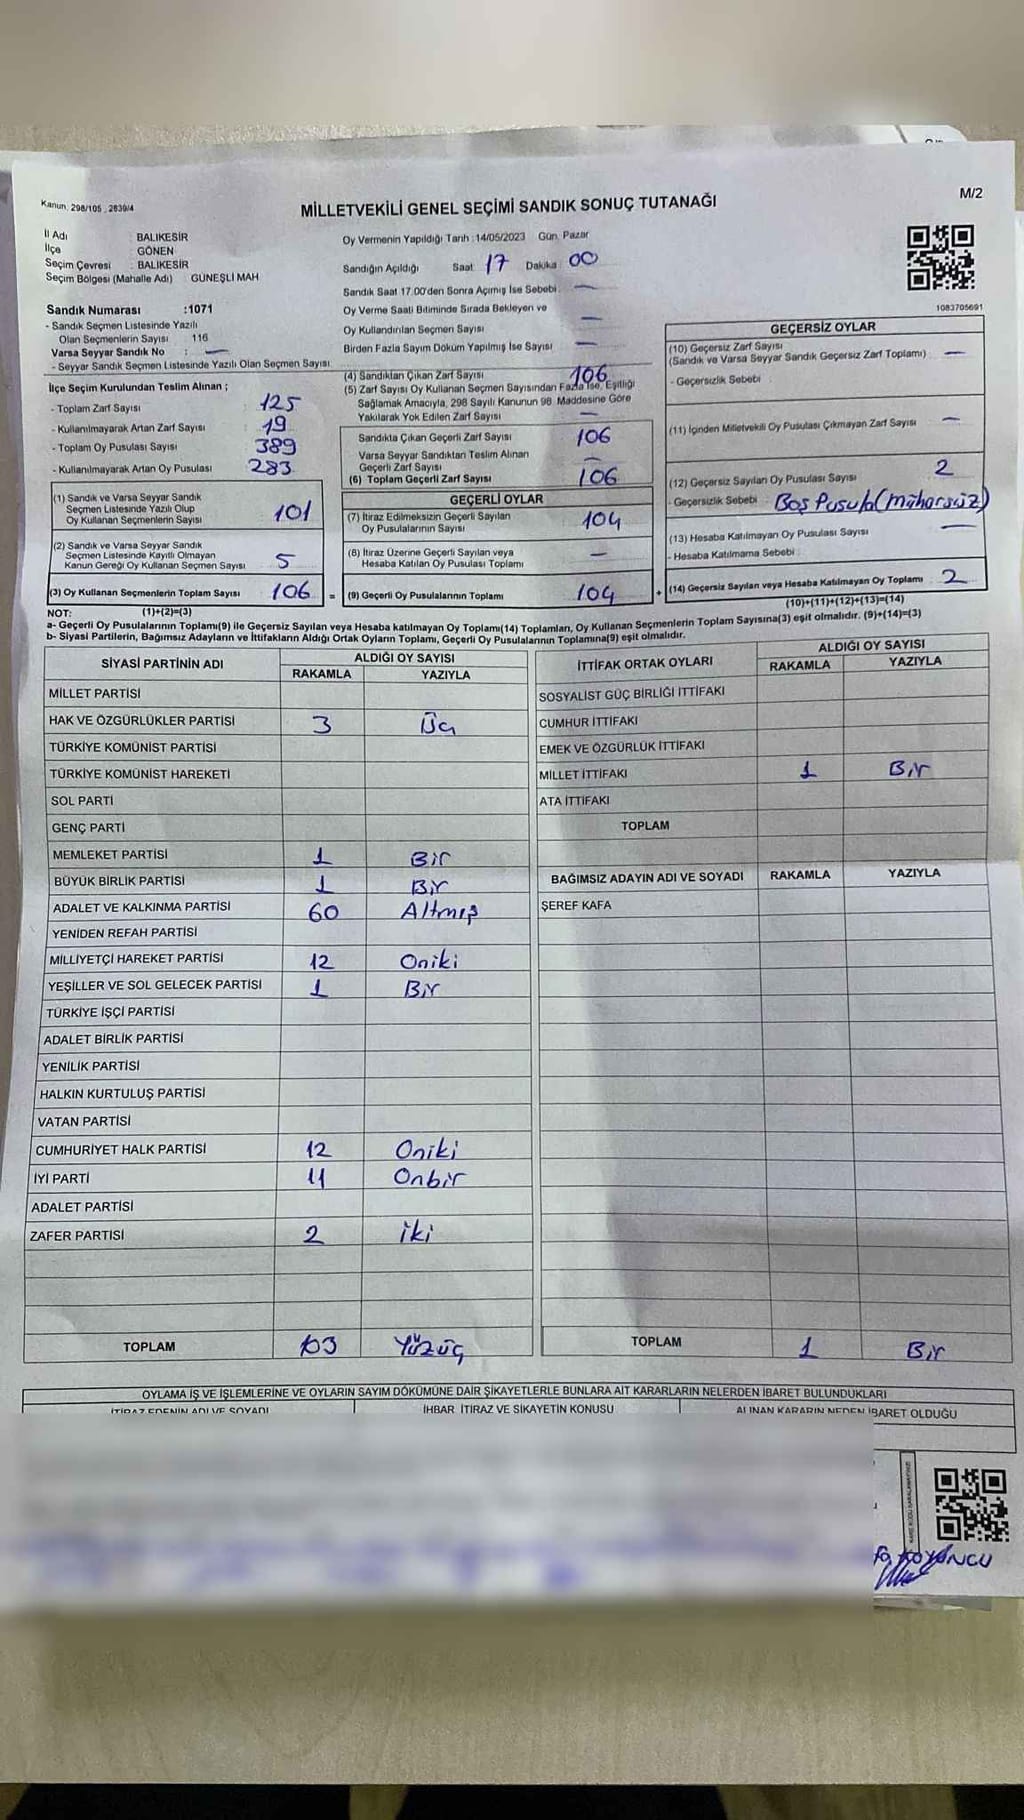 Kanun, 298/105 , 2839/4
MİLLETVEKİLİ GENEL SEÇİMİ SANDIK SONUÇ TUTANAĞI
M/2
İl Adı : BALIKESİR
İlçe : GÖNEN
Seçim Çevresi : BALIKESİR
Seçim Bölgesi (Mahalle Adı) : GÜNEŞLİ MAH
Sandık Numarası :1071
- Sandık Seçmen Listesinde Yazılı
Olan Seçmenlerin Sayısı : 116
Varsa Seyyar Sandık No : —
- Seyyar Sandık Seçmen Listesinde Yazılı Olan Seçmen Sayısı
İlçe Seçim Kurulundan Teslim Alınan ;
- Toplam Zarf Sayısı : 125
- Kullanılmayarak Artan Zarf Sayısı : 19
- Toplam Oy Pusulası Sayısı : 389
- Kullanılmayarak Artan Oy Pusulası : 283
(1) Sandık ve Varsa Seyyar Sandık
Seçmen Listesinde Yazılı Olup
Oy Kullanan Seçmenlerin Sayısı : 101
(2) Sandık ve Varsa Seyyar Sandık
Seçmen Listesinde Kayıtlı Olmayan
Kanun Gereği Oy Kullanan Seçmen Sayısı : 5
(3) Oy Kullanan Seçmenlerin Toplam Sayısı : 106
Oy Vermenin Yapıldığı Tarih :14/05/2023 Gün: Pazar
Sandığın Açıldığı Saat 17 Dakika 00
Sandık Saat 17.00'den Sonra Açılmış İse Sebebi : —
Oy Verme Saati Bitiminde Sırada Bekleyen ve
Oy Kullandırılan Seçmen Sayısı —
Birden Fazla Sayım Döküm Yapılmış İse Sayısı —
(4) Sandıktan Çıkan Zarf Sayısı 106
(5) Zarf Sayısı Oy Kullanan Seçmen Sayısından Fazla İse, Eşitliği
Sağlamak Amacıyla, 298 Sayılı Kanunun 98. Maddesine Göre
Yakılarak Yok Edilen Zarf Sayısı —
Sandıkta Çıkan Geçerli Zarf Sayısı 106
Varsa Seyyar Sandıktan Teslim Alınan
Geçerli Zarf Sayısı —
(6) Toplam Geçerli Zarf Sayısı 106
GEÇERLİ OYLAR
(7) İtiraz Edilmeksizin Geçerli Sayılan
Oy Pusulalarının Sayısı 104
(8) İtiraz Üzerine Geçerli Sayılan veya
Hesaba Katılan Oy Pusulası Toplamı —
= (9) Geçerli Oy Pusulalarının Toplamı 104 +
1083705691
GEÇERSİZ OYLAR
(10) Geçersiz Zarf Sayısı
(Sandık ve Varsa Seyyar Sandık Geçersiz Zarf Toplamı) —
- Geçersizlik Sebebi :
(11) İçinden Milletvekili Oy Pusulası Çıkmayan Zarf Sayısı —
(12) Geçersiz Sayılan Oy Pusulası Sayısı 2
- Geçersizlik Sebebi : Boş Pusula (Mühürsüz)
(13) Hesaba Katılmayan Oy Pusulası Sayısı —
- Hesaba Katılmama Sebebi :
(14) Geçersiz Sayılan veya Hesaba Katılmayan Oy Toplamı 2
NOT: (1)+(2)=(3) (10)+(11)+(12)+(13)=(14)
a- Geçerli Oy Pusulalarının Toplamı(9) ile Geçersiz Sayılan veya Hesaba katılmayan Oy Toplamı(14) Toplamları, Oy Kullanan Seçmenlerin Toplam Sayısına(3) eşit olmalıdır. (9)+(14)=(3)
b- Siyasi Partilerin, Bağımsız Adayların ve İttifakların Aldığı Ortak Oyların Toplamı, Geçerli Oy Pusulalarının Toplamına(9) eşit olmalıdır.
SİYASİ PARTİNİN ADI ALDIĞI OY SAYISI
RAKAMLA YAZIYLA
MİLLET PARTİSİ
HAK VE ÖZGÜRLÜKLER PARTİSİ 3 Üç
TÜRKİYE KOMÜNİST PARTİSİ
TÜRKİYE KOMÜNİST HAREKETİ
SOL PARTİ
GENÇ PARTİ
MEMLEKET PARTİSİ 1 Bir
BÜYÜK BİRLİK PARTİSİ 1 Bir
ADALET VE KALKINMA PARTİSİ 60 Altmış
YENİDEN REFAH PARTİSİ
MİLLİYETÇİ HAREKET PARTİSİ 12 Oniki
YEŞİLLER VE SOL GELECEK PARTİSİ 1 Bir
TÜRKİYE İŞÇİ PARTİSİ
ADALET BİRLİK PARTİSİ
YENİLİK PARTİSİ
HALKIN KURTULUŞ PARTİSİ
VATAN PARTİSİ
CUMHURİYET HALK PARTİSİ 12 Oniki
İYİ PARTİ 11 Onbir
ADALET PARTİSİ
ZAFER PARTİSİ 2 iki
TOPLAM 103 Yüzüç
İTTİFAK ORTAK OYLARI ALDIĞI OY SAYISI
RAKAMLA YAZIYLA
SOSYALİST GÜÇ BİRLİĞİ İTTİFAKI
CUMHUR İTTİFAKI
EMEK VE ÖZGÜRLÜK İTTİFAKI
MİLLET İTTİFAKI 1 Bir
ATA İTTİFAKI
TOPLAM
BAĞIMSIZ ADAYIN ADI VE SOYADI RAKAMLA YAZIYLA
ŞEREF KAFA
TOPLAM 1 Bir
OYLAMA İŞ VE İŞLEMLERİNE VE OYLARIN SAYIM DÖKÜMÜNE DAİR ŞİKAYETLERLE BUNLARA AİT KARARLARIN NELERDEN İBARET BULUNDUKLARI
İTİRAZ EDENİN ADI VE SOYADI İHBAR, İTİRAZ VE ŞİKAYETİN KONUSU ALINAN KARARIN NEDEN İBARET OLDUĞU
KOYUNCU